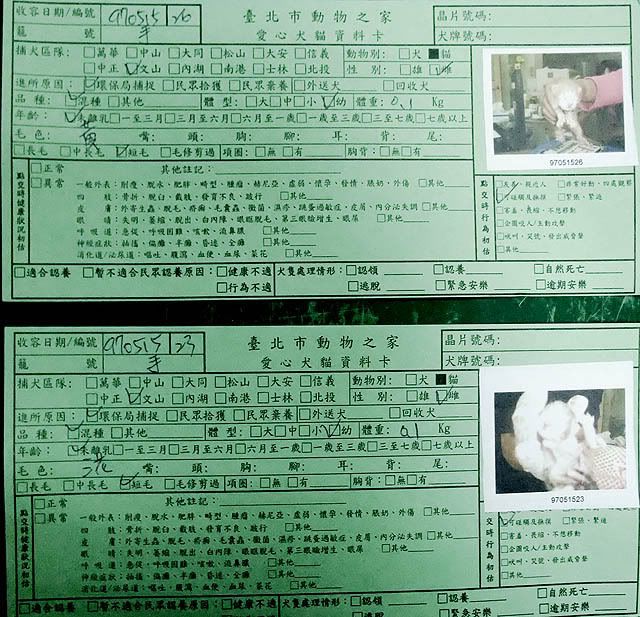 收容日期/編號 970515 26 臺北市動物之家 晶片號碼:
籠 號 手 愛心犬貓資料卡 犬牌號碼:
捕犬區隊: □萬華 □中山 □大同 □松山 □大安 □信義 動物別: □犬 ■貓
□中正 ☑文山 □內湖 □南港 □士林 □北投 性 別: □雄 ☑雌
進所原因: ☑環保局捕捉 □民眾拾獲 □民眾棄養 □外送犬 □回收犬
品 種: ☑混種 □其他 體 型: □大 □中 □小 ☑幼 體重: 0.1 Kg
年齡: ☑未離乳 □一至三月 □三月至六月 □六月至一歲 □一歲至三歲 □三至七歲 □七歲以上
毛 色: 黃 嘴: 頭: 胸: 腳: 耳: 背: 尾:
□長毛 □中長毛 ☑短毛 □毛修剪過 項圈: □無 □有 胸背: □無 □有
97051526
點交時健康狀況初估
□正常 其他註記:
□異常 一般外表: 削瘦、脫水、肥胖、畸型、腫瘤、赫尼亞、虛弱、懷孕、發情、脹奶、外傷 □其他
四 肢: 骨折、脫臼、截肢、發育不良、跛行 □其他
皮 膚: 外寄生蟲、脫毛、疥癬、毛囊蟲、黴菌、濕疹、跳蚤過敏症、皮屑、內分泌失調 □其他
眼 睛: 失明、萎縮、脫出、白內障、眼瞼脫毛、第三眼瞼增生、眼屎 □其他
呼 吸 道: 急促、呼吸困難、咳嗽、流鼻膿 □其他
神經症狀: 抽搐、偏癱、半癱、昏迷、全癱 □其他
消化道/泌尿道: 嘔吐、腹瀉、血便、血尿、菜花 □其他
點交時行為初估
□友善、親近人 □非常好動、四處觀察
☑可碰觸及撫摸 □緊張、緊迫
□害羞、畏縮、不想移動
□企圖咬人/主動攻擊
□吠叫、哭號、發出威脅聲
□其他
□適合認養 □暫不適合民眾認養原因: □健康不適 犬隻處理情形: □認領 □認養 □自然死亡
□行為不適 □逃脫 □緊急安樂 □逾期安樂
收容日期/編號 970515 23 臺北市動物之家 晶片號碼:
籠 號 手 愛心犬貓資料卡 犬牌號碼:
捕犬區隊: □萬華 □中山 □大同 □松山 □大安 □信義 動物別: □犬 ■貓
□中正 ☑文山 □內湖 □南港 □士林 □北投 性 別: □雄 ☑雌
進所原因: ☑環保局捕捉 □民眾拾獲 □民眾棄養 □外送犬 □回收犬
品 種: ☑混種 □其他 體 型: □大 □中 □小 ☑幼 體重: 0.1 Kg
年齡: ☑未離乳 □一至三月 □三月至六月 □六月至一歲 □一歲至三歲 □三至七歲 □七歲以上
毛 色: 三花 嘴: 頭: 胸: 腳: 耳: 背: 尾:
□長毛 □中長毛 ☑短毛 □毛修剪過 項圈: □無 □有 胸背: □無 □有
97051523
點交時健康狀況初估
□正常 其他註記:
□異常 一般外表: 削瘦、脫水、肥胖、畸型、腫瘤、赫尼亞、虛弱、懷孕、發情、脹奶、外傷 □其他
四 肢: 骨折、脫臼、截肢、發育不良、跛行 □其他
皮 膚: 外寄生蟲、脫毛、疥癬、毛囊蟲、黴菌、濕疹、跳蚤過敏症、皮屑、內分泌失調 □其他
眼 睛: 失明、萎縮、脫出、白內障、眼瞼脫毛、第三眼瞼增生、眼屎 □其他
呼 吸 道: 急促、呼吸困難、咳嗽、流鼻膿 □其他
神經症狀: 抽搐、偏癱、半癱、昏迷、全癱 □其他
消化道/泌尿道: 嘔吐、腹瀉、血便、血尿、菜花 □其他
交時行為初估
☑可碰觸及撫摸 □緊張、緊迫
□害羞、畏縮、不想移動
□企圖咬人/主動攻擊
□吠叫、哭號、發出威脅聲
□其他
□適合認養 □暫不適合民眾認養原因: □健康不適 犬隻處理情形: □認領 □認養 □自然死亡
□行為不適 □逃脫 □緊急安樂 □逾期安樂